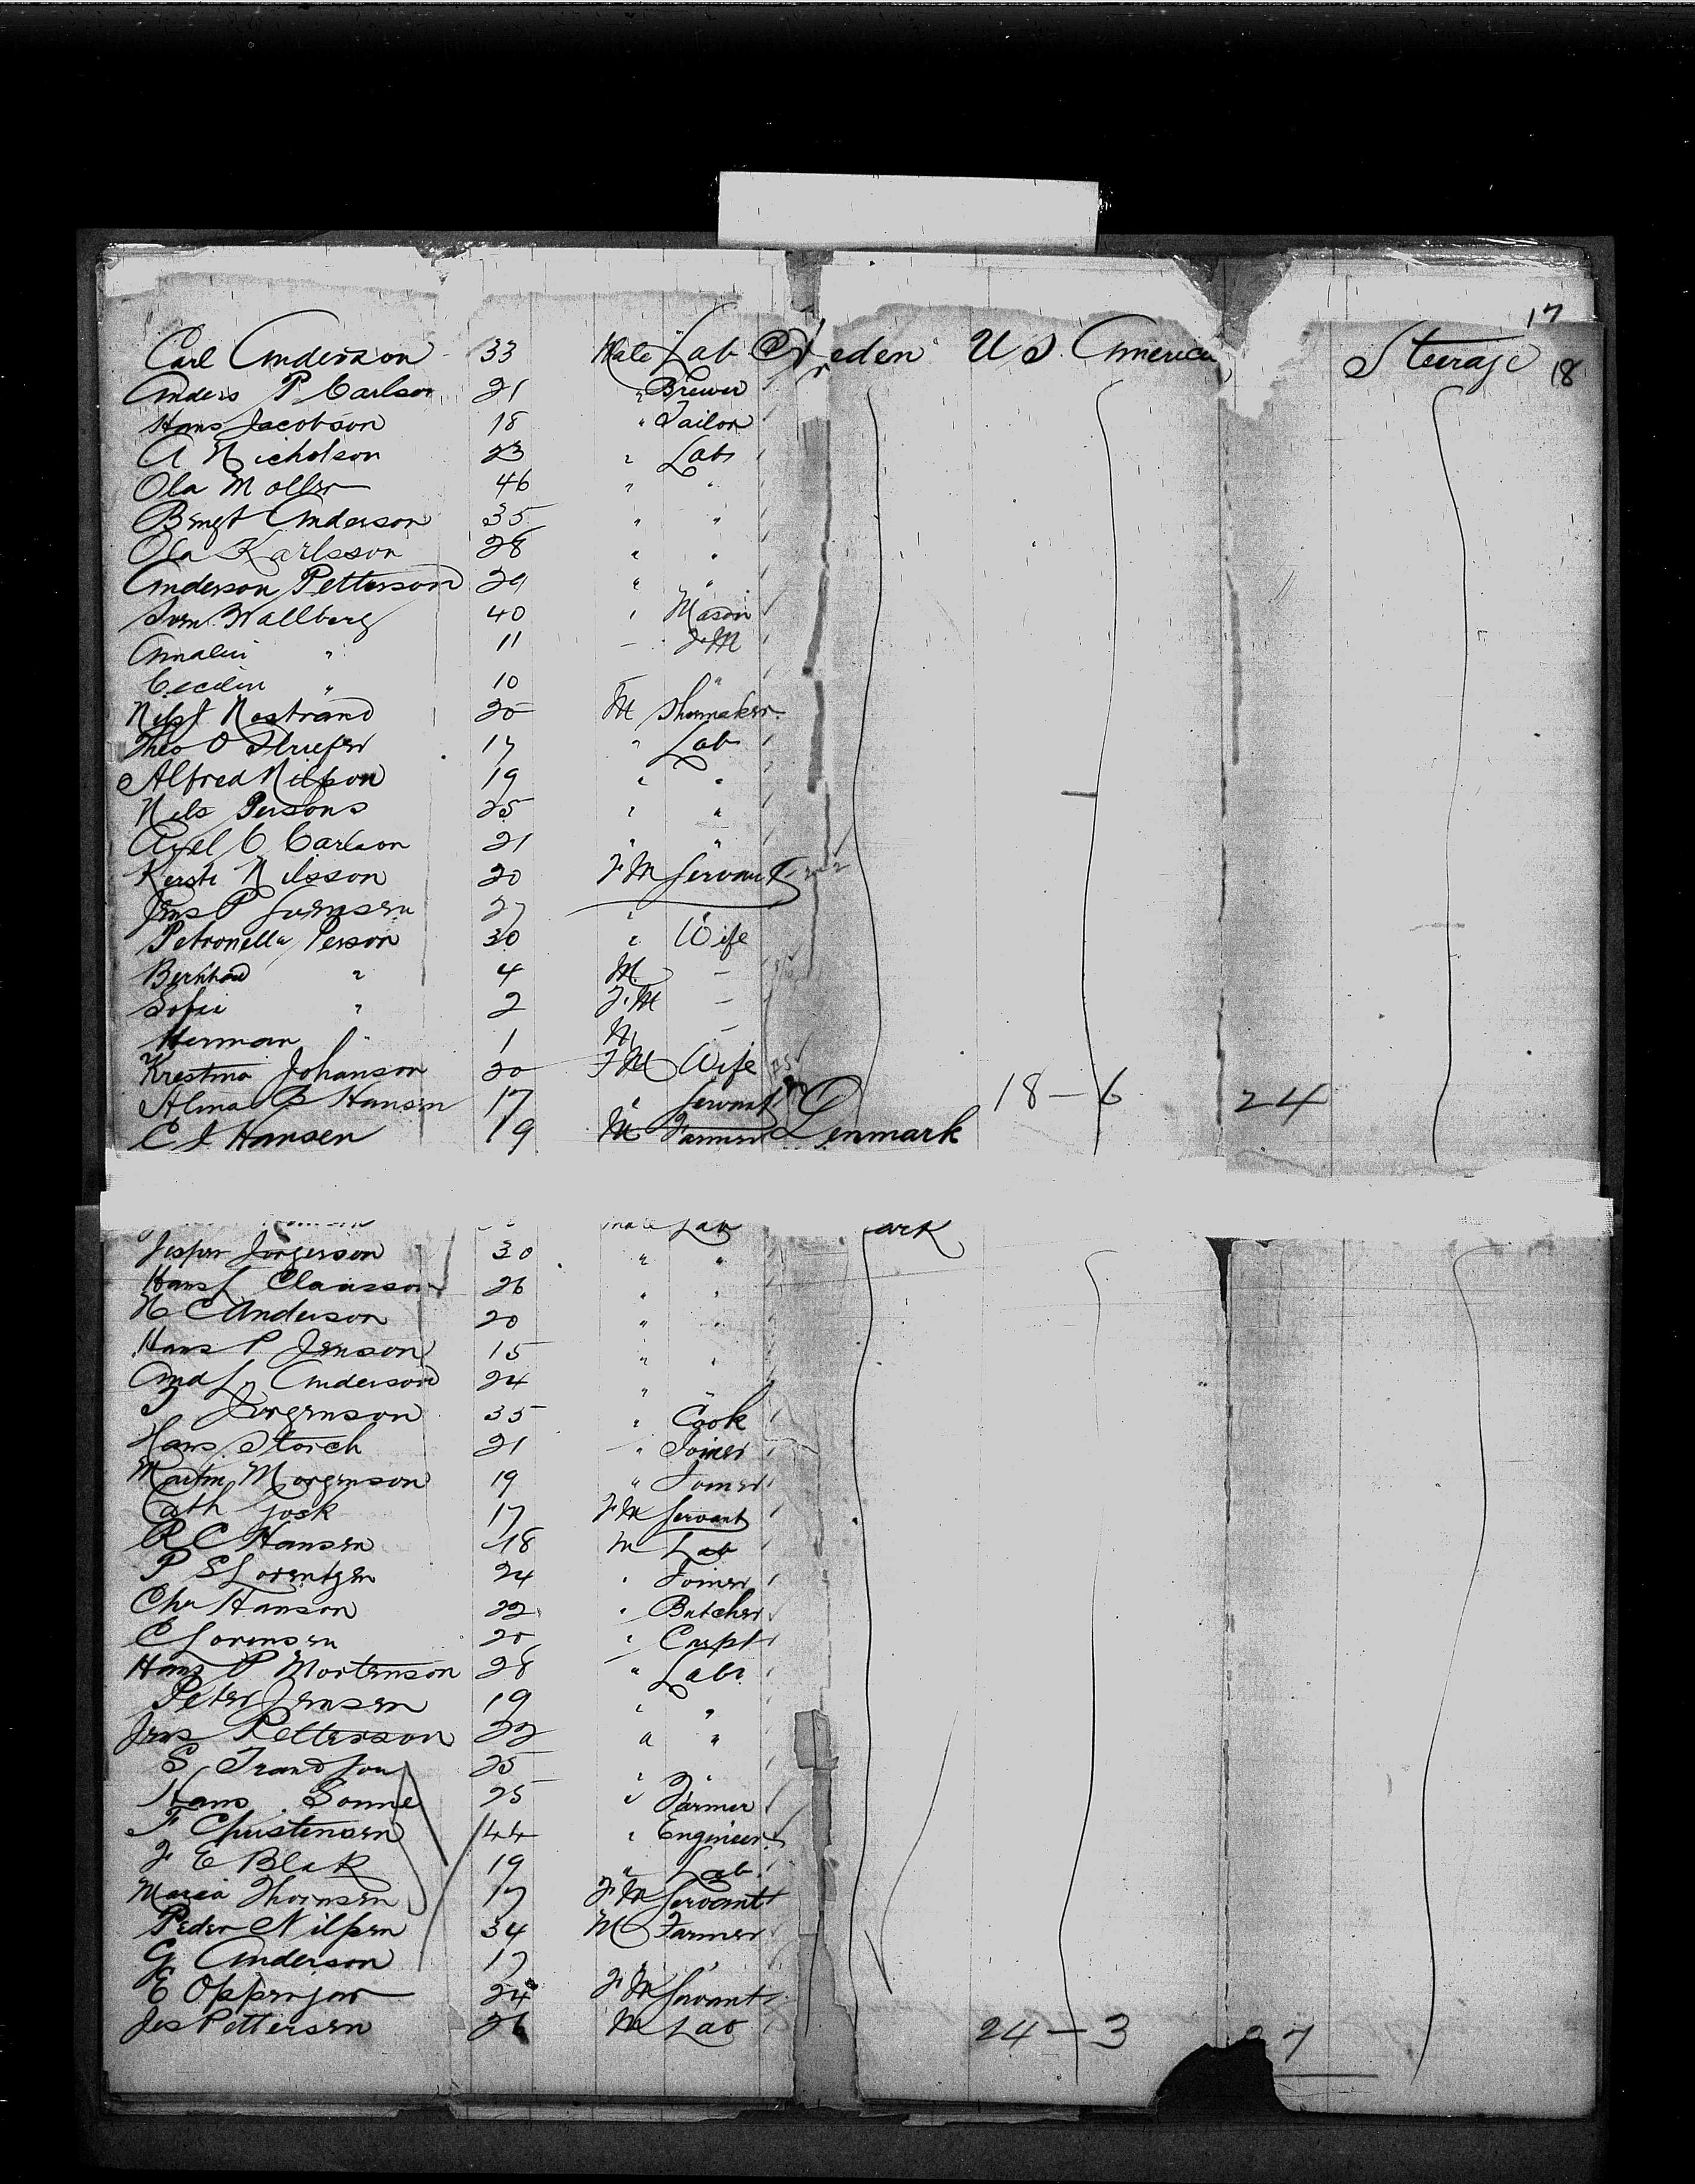 17
Carl Anderson 33 Male Lab Sweden U S America Steerage 18
Anders P Carlson 21 " Brewer
Hans Jacobson 18 " Tailor
A Nicholson 23 " Lab
Ola Moller 46 " "
Bengt Anderson 35 " "
Ola Karlsson 28 " "
Anderson Petterson 29 " "
Sven Wallberg 40 " Mason
Annalin " 11 - F M
Cecilin " 10 - "
Nils Nostrand 20 M Shoemaker
Theo O 17 " Lab
Alfred Nilson 19 " "
Nels Persons 25 " "
Axel C Carlson 21 " "
Kersti Nilsson 20 F M Servant
Jens P Sorensen 27 "
Petronella Person 30 " Wife
Bernhard " 4 M -
Sofie " 2 F. M -
Herman " 1 M -
Krestina Johanson 20 F M Wife
Alma B Hansen 17 " Servant 18 - 6 24
C J Hansen 19 M Farmer Denmark
Male Lab ark
Jesper Jorgerson 30 " "
Hans L Claasson 26 " "
N C Anderson 20 " "
Hans P Jenson 15 " "
And L Anderson 24 " "
J Jorgenson 35 " Cook
Hans Storch 21 " Joiner
Martin Morgenson 19 " Joiner
Cath Gosk 17 F M Servant
R C Hansen 18 M Lab
P S Lorentzen 24 " Joiner
Chr Hanson 22 " Butcher
C Lorensen 20 " Carpt
Hans P Mortenson 28 " Lab
Peter Jensen 19 " "
Jens Petterson 22 " "
S 25 " "
Hans Sonne 25 " Farmer
F Christensen 44 " Engineer
F E Blak 19 " Lab
Maria Thomsen 17 F M Servant
Peder Nilsen 34 M Farmer
G Anderson 17 " "
E 24 F M Servant
Jes Pettersen 26 M Lab 24 - 3 27